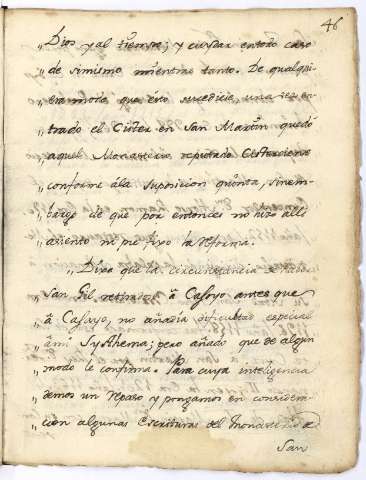 46
„Dios y al tiempo; y cuydar en todo caso
„de simismo mientras tanto. De qualqui
„era modo que esto sucediese, una vez en
„trado el Cister en San Martin quedó
„aquel Monasterio reputado Cisterciense
„conforme á la suposicion quinta, sinem-
„bargo de que por entonces no hizo alli
„assiento ni pie fixo la reforma.
„Dixo que la circunstancia de haberse
„San Gil retirado á Casoyo antes que
„á Casayo, no añadia dificultad especial
„ámi Systhema; pero añado que de algun
„modo le confirma. Para cuya inteligencia
„demos un repaso y pongamos en considera-
„cion algunas Escrituras del Monasterio de
San